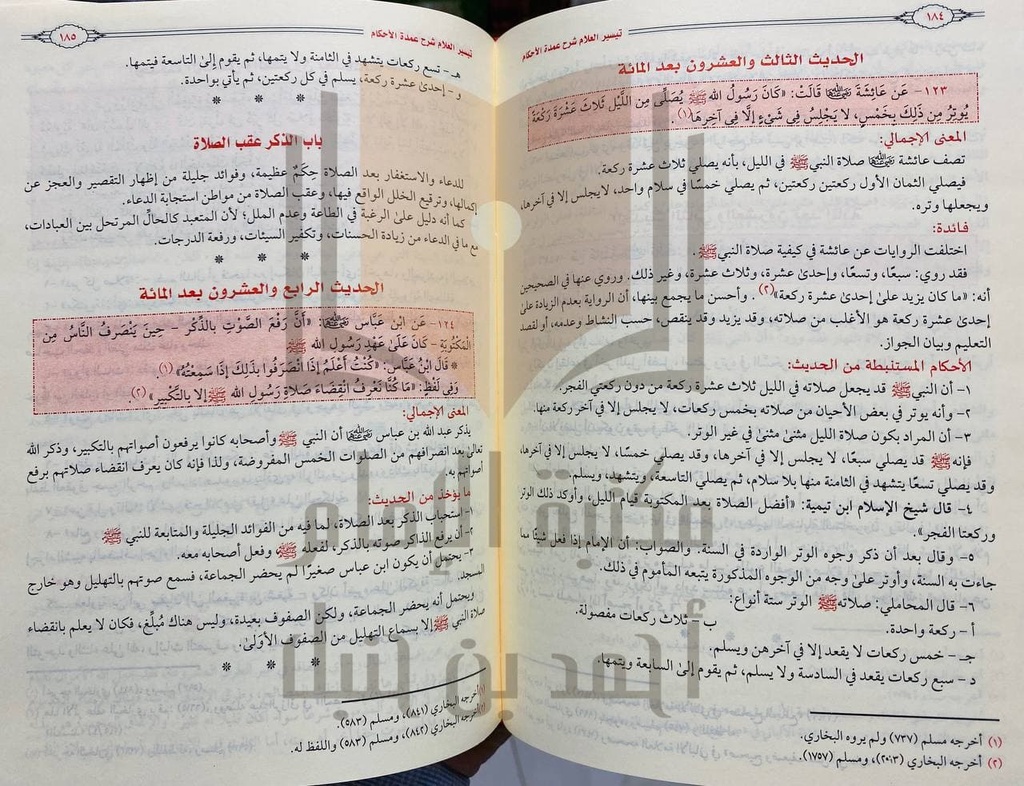 ١٨٤
تيسير العلام شرح عمدة الأحكام
الحديث الثالث والعشرون بعد المائة
١٢٣- عَن عَائِشَةَ رضي الله عنها قَالَتْ: «كَانَ رَسُولُ الله ﷺ يُصَلِّي مِنِ اللَّيْلِ ثَلَاثَ عَشْرَةَ رَكْعَةً
يُوتِرُ مِن ذَلِكَ بِخَمْسٍ، لَا يَجْلِسُ فِي شَيْءٍ إِلَّا فِي آخِرِهَا»(١).
المعنى الإجمالي:
تصف عائشة رضي الله عنها صلاة النبي ﷺ في الليل، بأنه يصلي ثلاث عشرة ركعة.
فيصلي الثمان الأول ركعتين ركعتين، ثم يصلي خمسًا في سلام واحد، لا يجلس إلا في آخرها،
ويجعلها وتره.
فائدة:
اختلفت الروايات عن عائشة في كيفية صلاة النبي ﷺ.
فقد روي: سبعًا، وتسعًا، وإحدى عشرة، وثلاث عشرة، وغير ذلك. وروي عنها في الصحيحين
أنه: «ما كان يزيد على إحدى عشرة ركعة»(٢). وأحسن ما يجمع بينها، أن الرواية بعدم الزيادة على
إحدى عشرة ركعة هو الأغلب من صلاته، وقد يزيد وقد ينقص، حسب النشاط وعدمه، أو لقصد
التعليم وبيان الجواز.
الأحكام المستنبطة من الحديث:
١- أن النبي ﷺ قد يجعل صلاته في الليل ثلاث عشرة ركعة من دون ركعتي الفجر.
٢- وأنه يوتر في بعض الأحيان من صلاته بخمس ركعات، لا يجلس إلا في آخر ركعة منها.
٣- أن المراد بكون صلاة الليل مثنى مثنى في غير الوتر.
فإنه ﷺ قد يصلي سبعًا، لا يجلس إلا في آخرها، وقد يصلي خمسًا، لا يجلس إلا في آخرها،
وقد يصلي تسعًا يتشهد في الثامنة منها بلا سلام، ثم يصلي التاسعة، ويتشهد، ويسلم.
٤- قال شيخ الإسلام ابن تيمية: «أفضل الصلاة بعد المكتوبة قيام الليل، وأوكد ذلك الوتر
وركعتا الفجر».
٥- وقال بعد أن ذكر وجوه الوتر الواردة في السنة. والصواب: أن الإمام إذا فعل شيئًا مما
جاءت به السنة، وأوتر على وجه من الوجوه المذكورة يتبعه المأموم في ذلك.
٦- قال المحاملي: صلاته ﷺ الوتر ستة أنواع:
أ - ركعة واحدة.
ب - ثلاث ركعات مفصولة.
جـ - خمس ركعات لا يقعد إلا في آخرهن ويسلم.
د - سبع ركعات يقعد في السادسة ولا يسلم، ثم يقوم إلى السابعة ويتمها.
(١) أخرجه مسلم (٧٣٧) ولم يروه البخاري.
(٢) أخرجه البخاري (٢٠١٣)، ومسلم (١٧٥٧).
تيسير العلام شرح عمدة الأحكام
١٨٥
هـ- تسع ركعات يتشهد في الثامنة ولا يتمها، ثم يقوم إلى التاسعة فيتمها.
و - إحدى عشرة ركعة، يسلم في كل ركعتين، ثم يأتي بواحدة.
* * *
باب الذكر عقب الصلاة
للدعاء والاستغفار بعد الصلاة حِكَمٌ عظيمة، وفوائد جليلة من إظهار التقصير والعجز عن
إكمالها، وترقيع الخلل الواقع فيها، وعقب الصلاة من مواطن استجابة الدعاء.
كما أنه دليل على الرغبة في الطاعة وعدم الملل؛ لأن المتعبد كالحالِّ المرتحل بين العبادات،
مع ما في الدعاء من زيادة الحسنات، وتكفير السيئات، ورفعة الدرجات.
* * *
الحديث الرابع والعشرون بعد المائة
١٢٤- عَن ابن عَبَّاس رضي الله عنهما: «أَنَّ رَفْعَ الصَّوْتِ بالذِّكْرِ - حِينَ يَنْصَرِفُ النَّاسُ مِن
المَكْتُوبَةِ - كَانَ عَلَى عَهْدِ رَسُولِ الله ﷺ
* قَالَ ابْنُ عَبَّاس: «كُنْتُ أَعْلَمُ إِذَا انْصَرَفُوا بِذَلِكَ إِذَا سَمِعْتُهُ»(١).
وَفِي لَفْظٍ: «مَا كُنَّا نَعْرِفُ انْقِضَاءَ صَلَاةِ رَسُولِ الله ﷺ إِلا بِالتَّكْبِيرِ»(٢).
المعنى الإجمالي:
يذكر عبد الله بن عباس رضي الله عنهما أن النبي ﷺ وأصحابه كانوا يرفعون أصواتهم بالتكبير، وذكر الله
تعالى بعد انصرافهم من الصلوات الخمس المفروضة، ولذا فإنه كان يعرف انقضاء صلاتهم برفع
أصواتهم به.
ما يؤخذ من الحديث:
١- استحباب الذكر بعد الصلاة، لما فيه من الفوائد الجليلة والمتابعة للنبي ﷺ
٢- أن يرفع الذاكر صوته بالذكر، لفعله ﷺ وفعل أصحابه معه.
٣- يحتمل أن يكون ابن عباس صغيرًا لم يحضر الجماعة، فسمع صوتهم بالتهليل وهو خارج
المسجد.
ويحتمل أنه يحضر الجماعة، ولكن الصفوف بعيدة، وليس هناك مُبلِّغ، فكان لا يعلم بانقضاء
صلاة النبي ﷺ إلا بسماع التهليل من الصفوف الأولى.
* * *
(١) أخرجه البخاري (٨٤١)، ومسلم (٥٨٣).
(٢) أخرجه البخاري (٨٤٢)، ومسلم (٥٨٣) واللفظ له.
مكتبة الإمام
أحمد بن حنبل